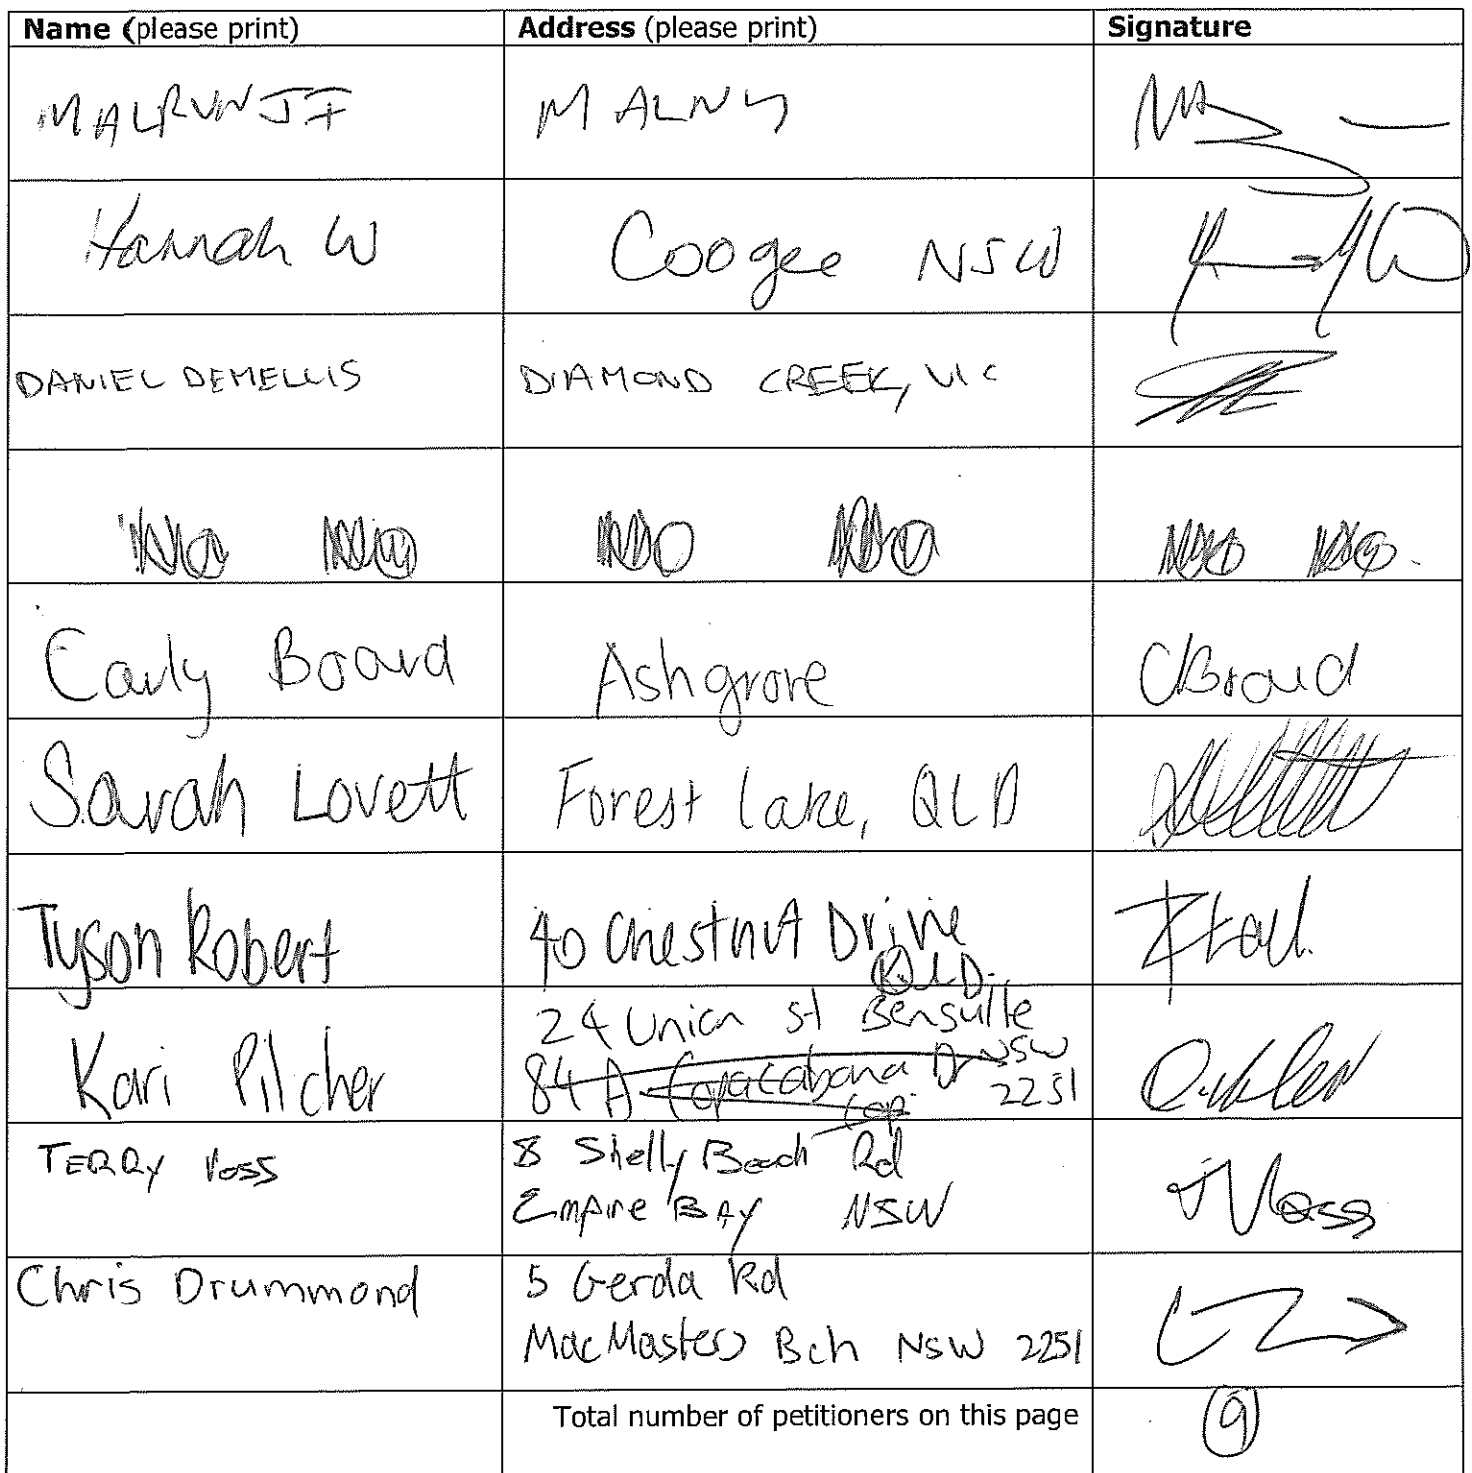 Name (please print) Address (please print) Signature
MALRUNJI MALNY
Hannah W Coogee NSW
DANIEL DEMELLIS DIAMOND CREEK, VIC
Carly Board Ashgrove CBroard
Sarah Lovett Forest Lake, QLD
Tyson Robert 40 Chestnut Drive
QLD.
24 Union St Bensville
Kari Pilcher 84 A Copacabana Dr NSW
Copa 2251
TERRY VOSS 8 Shelly Beach Rd
Empire BAY NSW TVoss
Chris Drummond 5 Gerda Rd
MacMasters Bch NSW 2251
Total number of petitioners on this page 9